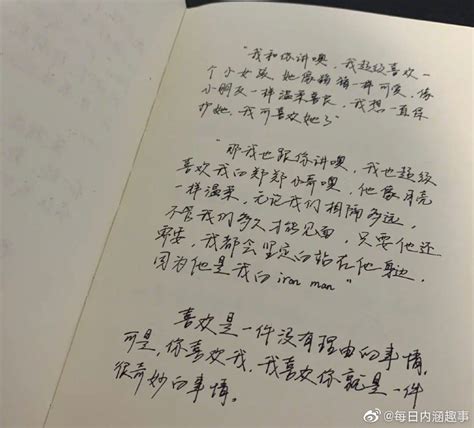 "我和你讲噢，我超级喜欢一
个小女孩，她像猫猫一样可爱，像
小朋友一样温柔善良，我想一直保
护她，我可喜欢她了"
"那我也跟你讲噢，我也超级
喜欢我的郑郑小哥噢，他像月亮
一样温柔，无论我们相隔多远，
不管我们多久才能见面，只要他还
需要，我都会坚定的站在他身边，
因为他是我的iron man"
喜欢是一件没有理由的事情，
可是，你喜欢我，我喜欢你就是一件
很奇妙的事情。
@每日内涵趣事